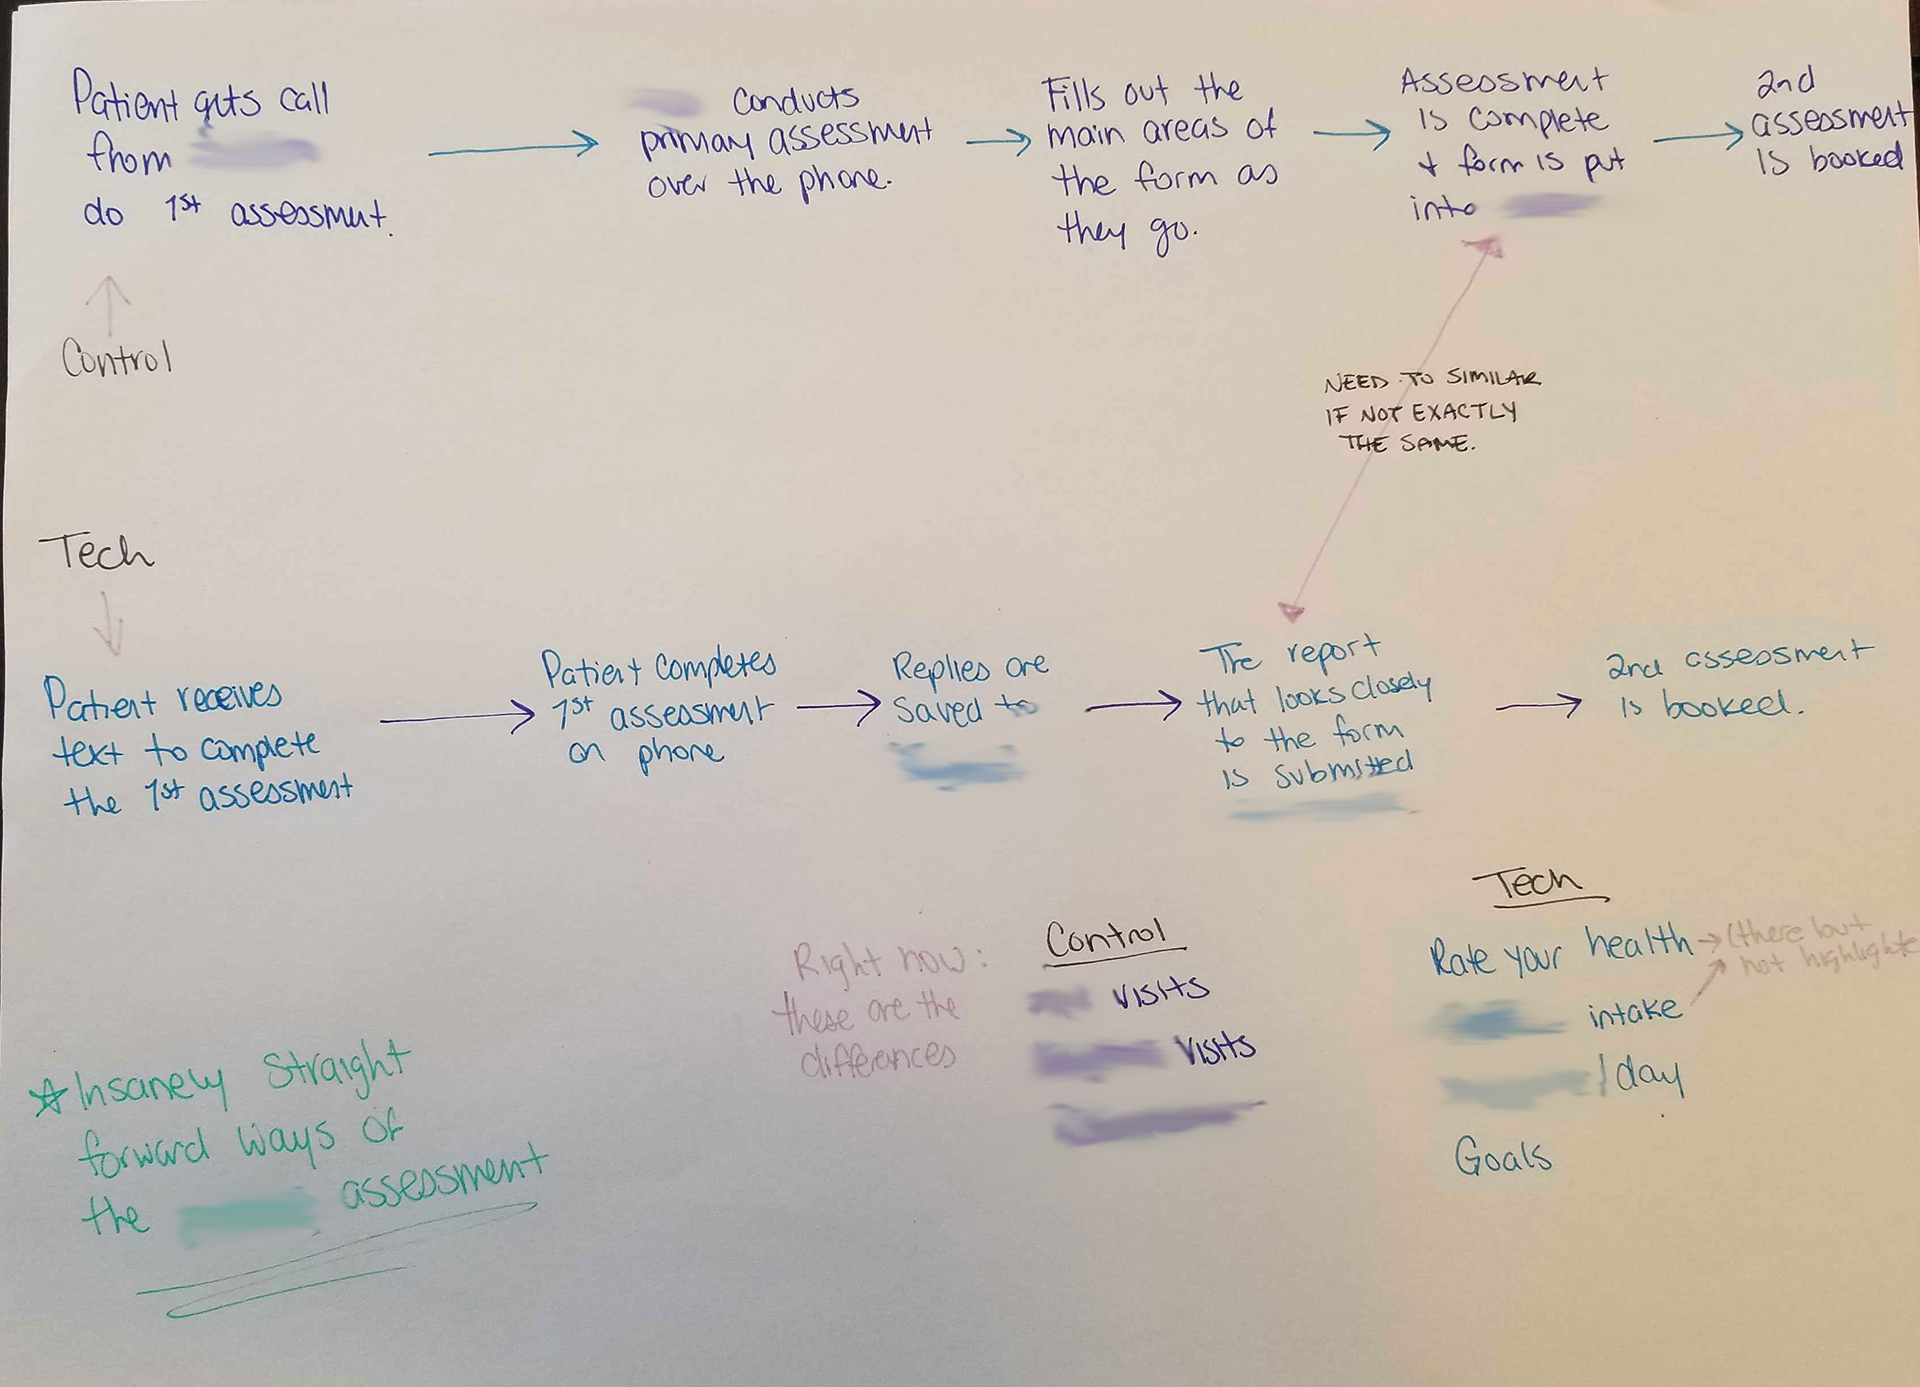 Patient gets call
from
do 1st assessmut.
conducts
primary assessment
over the phone.
Fills out the
main areas of
the form as
they go.
Assessment
is complete
+ form is put
into
2nd
assessment
is booked
Control
NEED TO SIMILAR
IF NOT EXACTLY
THE SAME.
Tech
Patient receives
text to complete
the 1st assessment
Patient completes
1st assessment
on phone
Replies are
saved to
The report
that looks closely
to the form
is submitted
2nd assessment
is booked.
Right now:
these are the
differences
Control
visits
visits
Tech
Rate your health → (there but
not highlighte
intake
/day
Goals
☆ Insanely straight
forward ways of
the assessment